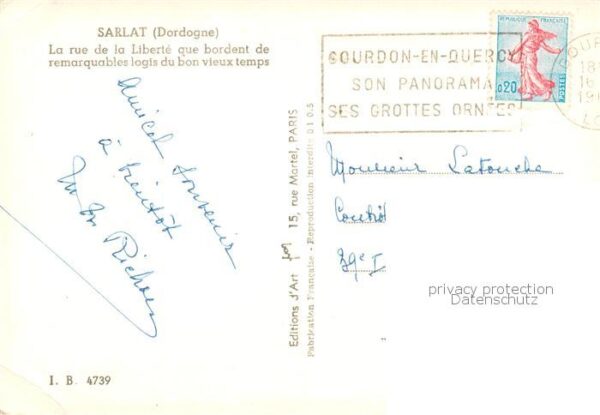 SARLAT (Dordogne)
La rue de la Liberté que bordent de
remarquables logis du bon vieux temps
Amical souvenir
à bientôt
REPUBLIQUE FRANÇAISE
0,20
POSTES
GOURDON-EN-QUERCY
SON PANORAMA
SES GROTTES ORNEES
GOUR
18
16
19
LO
Monsieur Latouche
Editions d'Art 15, rue Martel, PARIS
Fabrication Française - Reproduction interdite 0105
privacy protection
Datenschutz
I. B. 4739